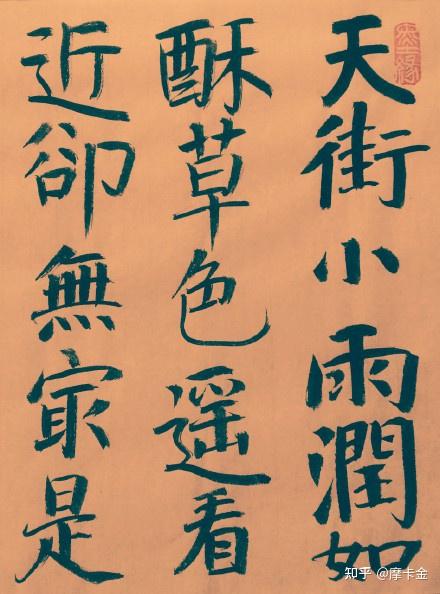 天街小雨潤如
酥草色遥看
近卻無㝡是
知乎 @摩卡金